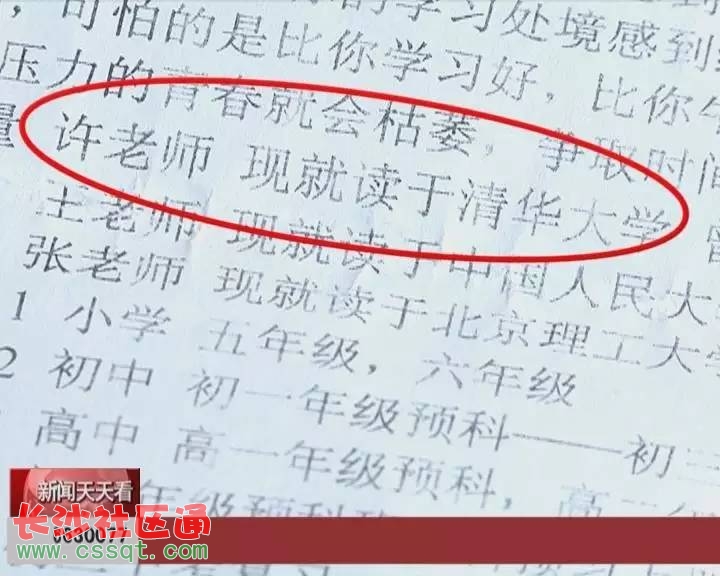 的学习处境感到
，可怕的是比你学习好，比你
压力的青春就会枯萎，争取时间
量 许老师 现就读于清华大学 曾
王老师 现就读于中国人民大
张老师 现就读于北京理工大学
1 小学 五年级，六年级
2 初中 初一年级预科——初三
高中 高一年级预科，高二
年级预科
新闻天天看
长沙社区通
0630077
www.cssqt.com